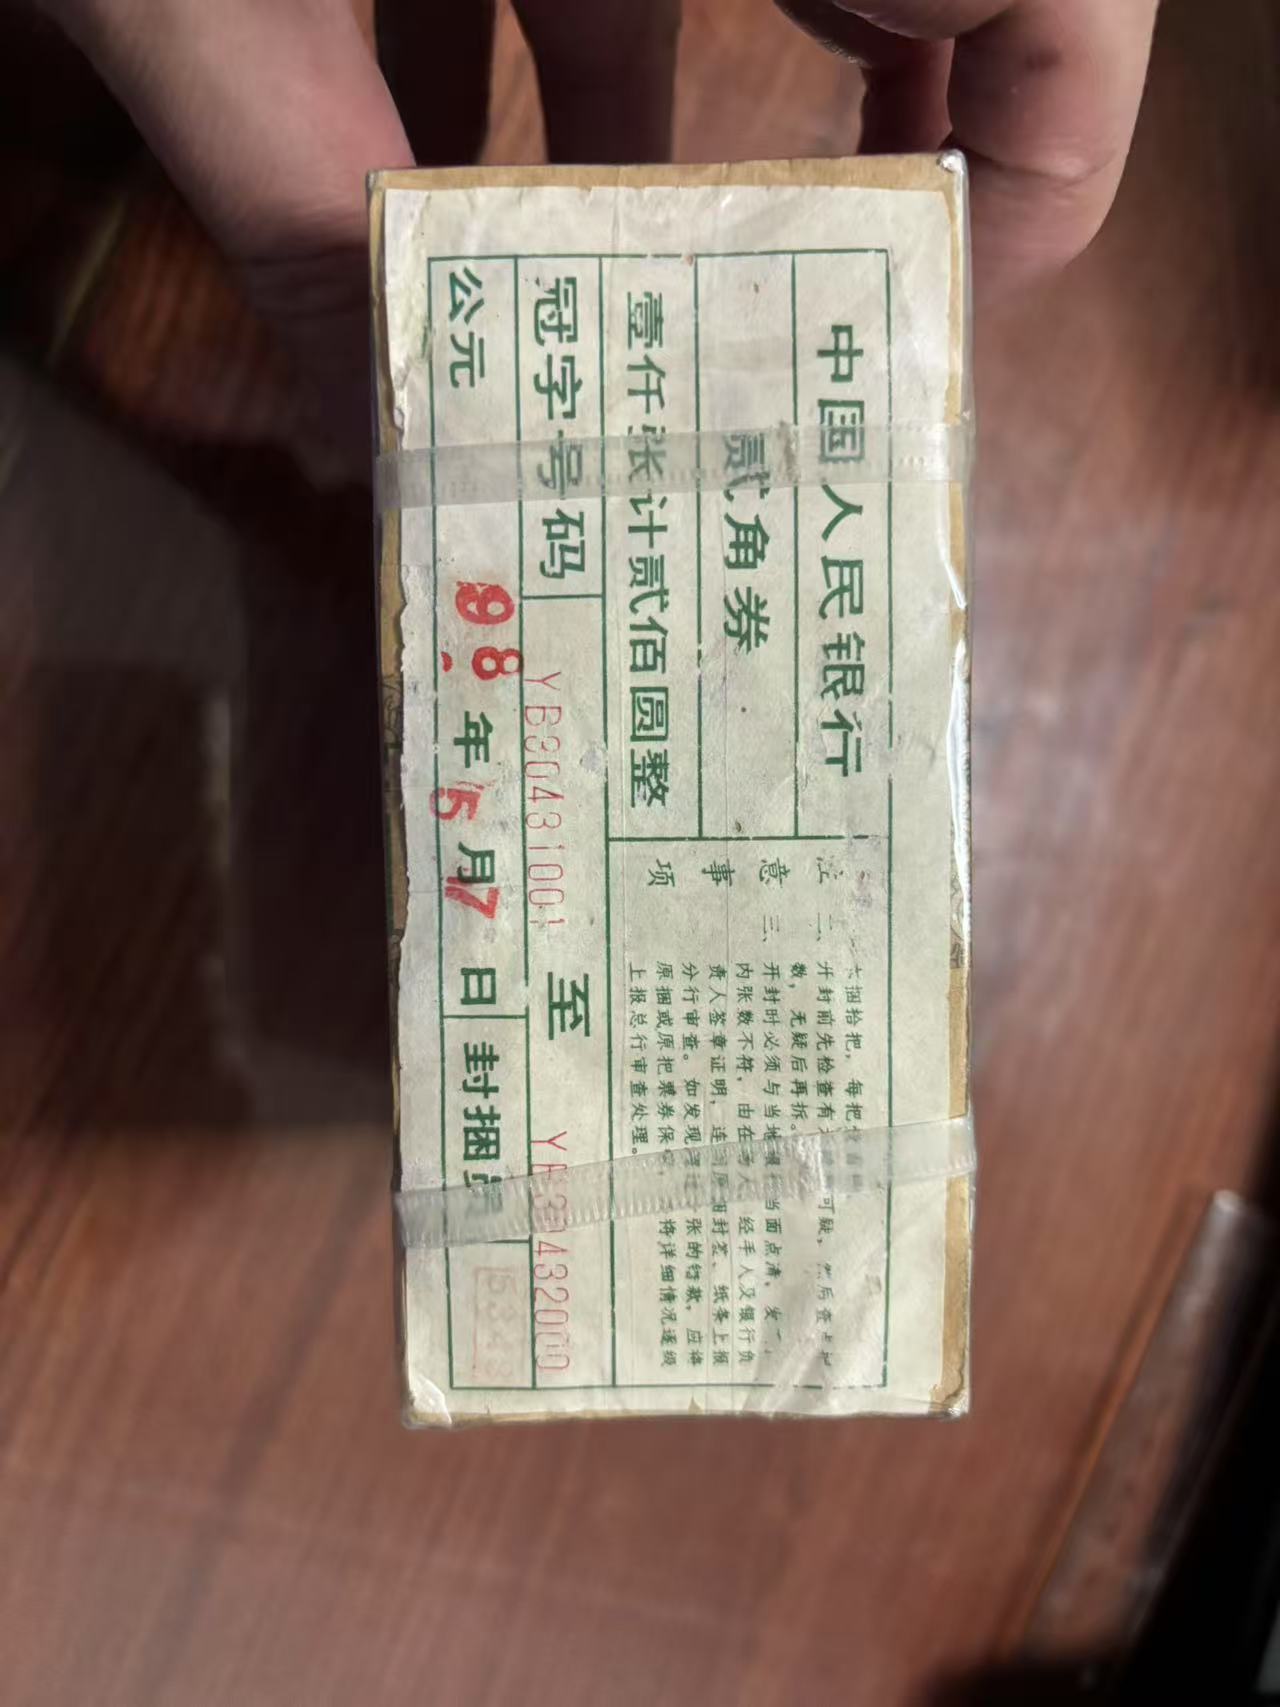 中国人民银行
贰角券
壹仟张计贰佰圆整
冠字号码 YB30431001 至 YB30432000
公元 98 年 5 月 7 日 封捆员 5343
注意事项
捆拾把,每把
二、开封前先检查有 可疑,然后查点把
数,无疑后再拆。
三、开封时必须与当地银行当面点清,发
内张数不符,由在场人、经手人及银行负
责人签章证明,连同原捆封签、纸条上报
分行审查。如发现 张的钞票,应将
原捆或原把票券保 将详细情况逐级
上报总行审查处理。